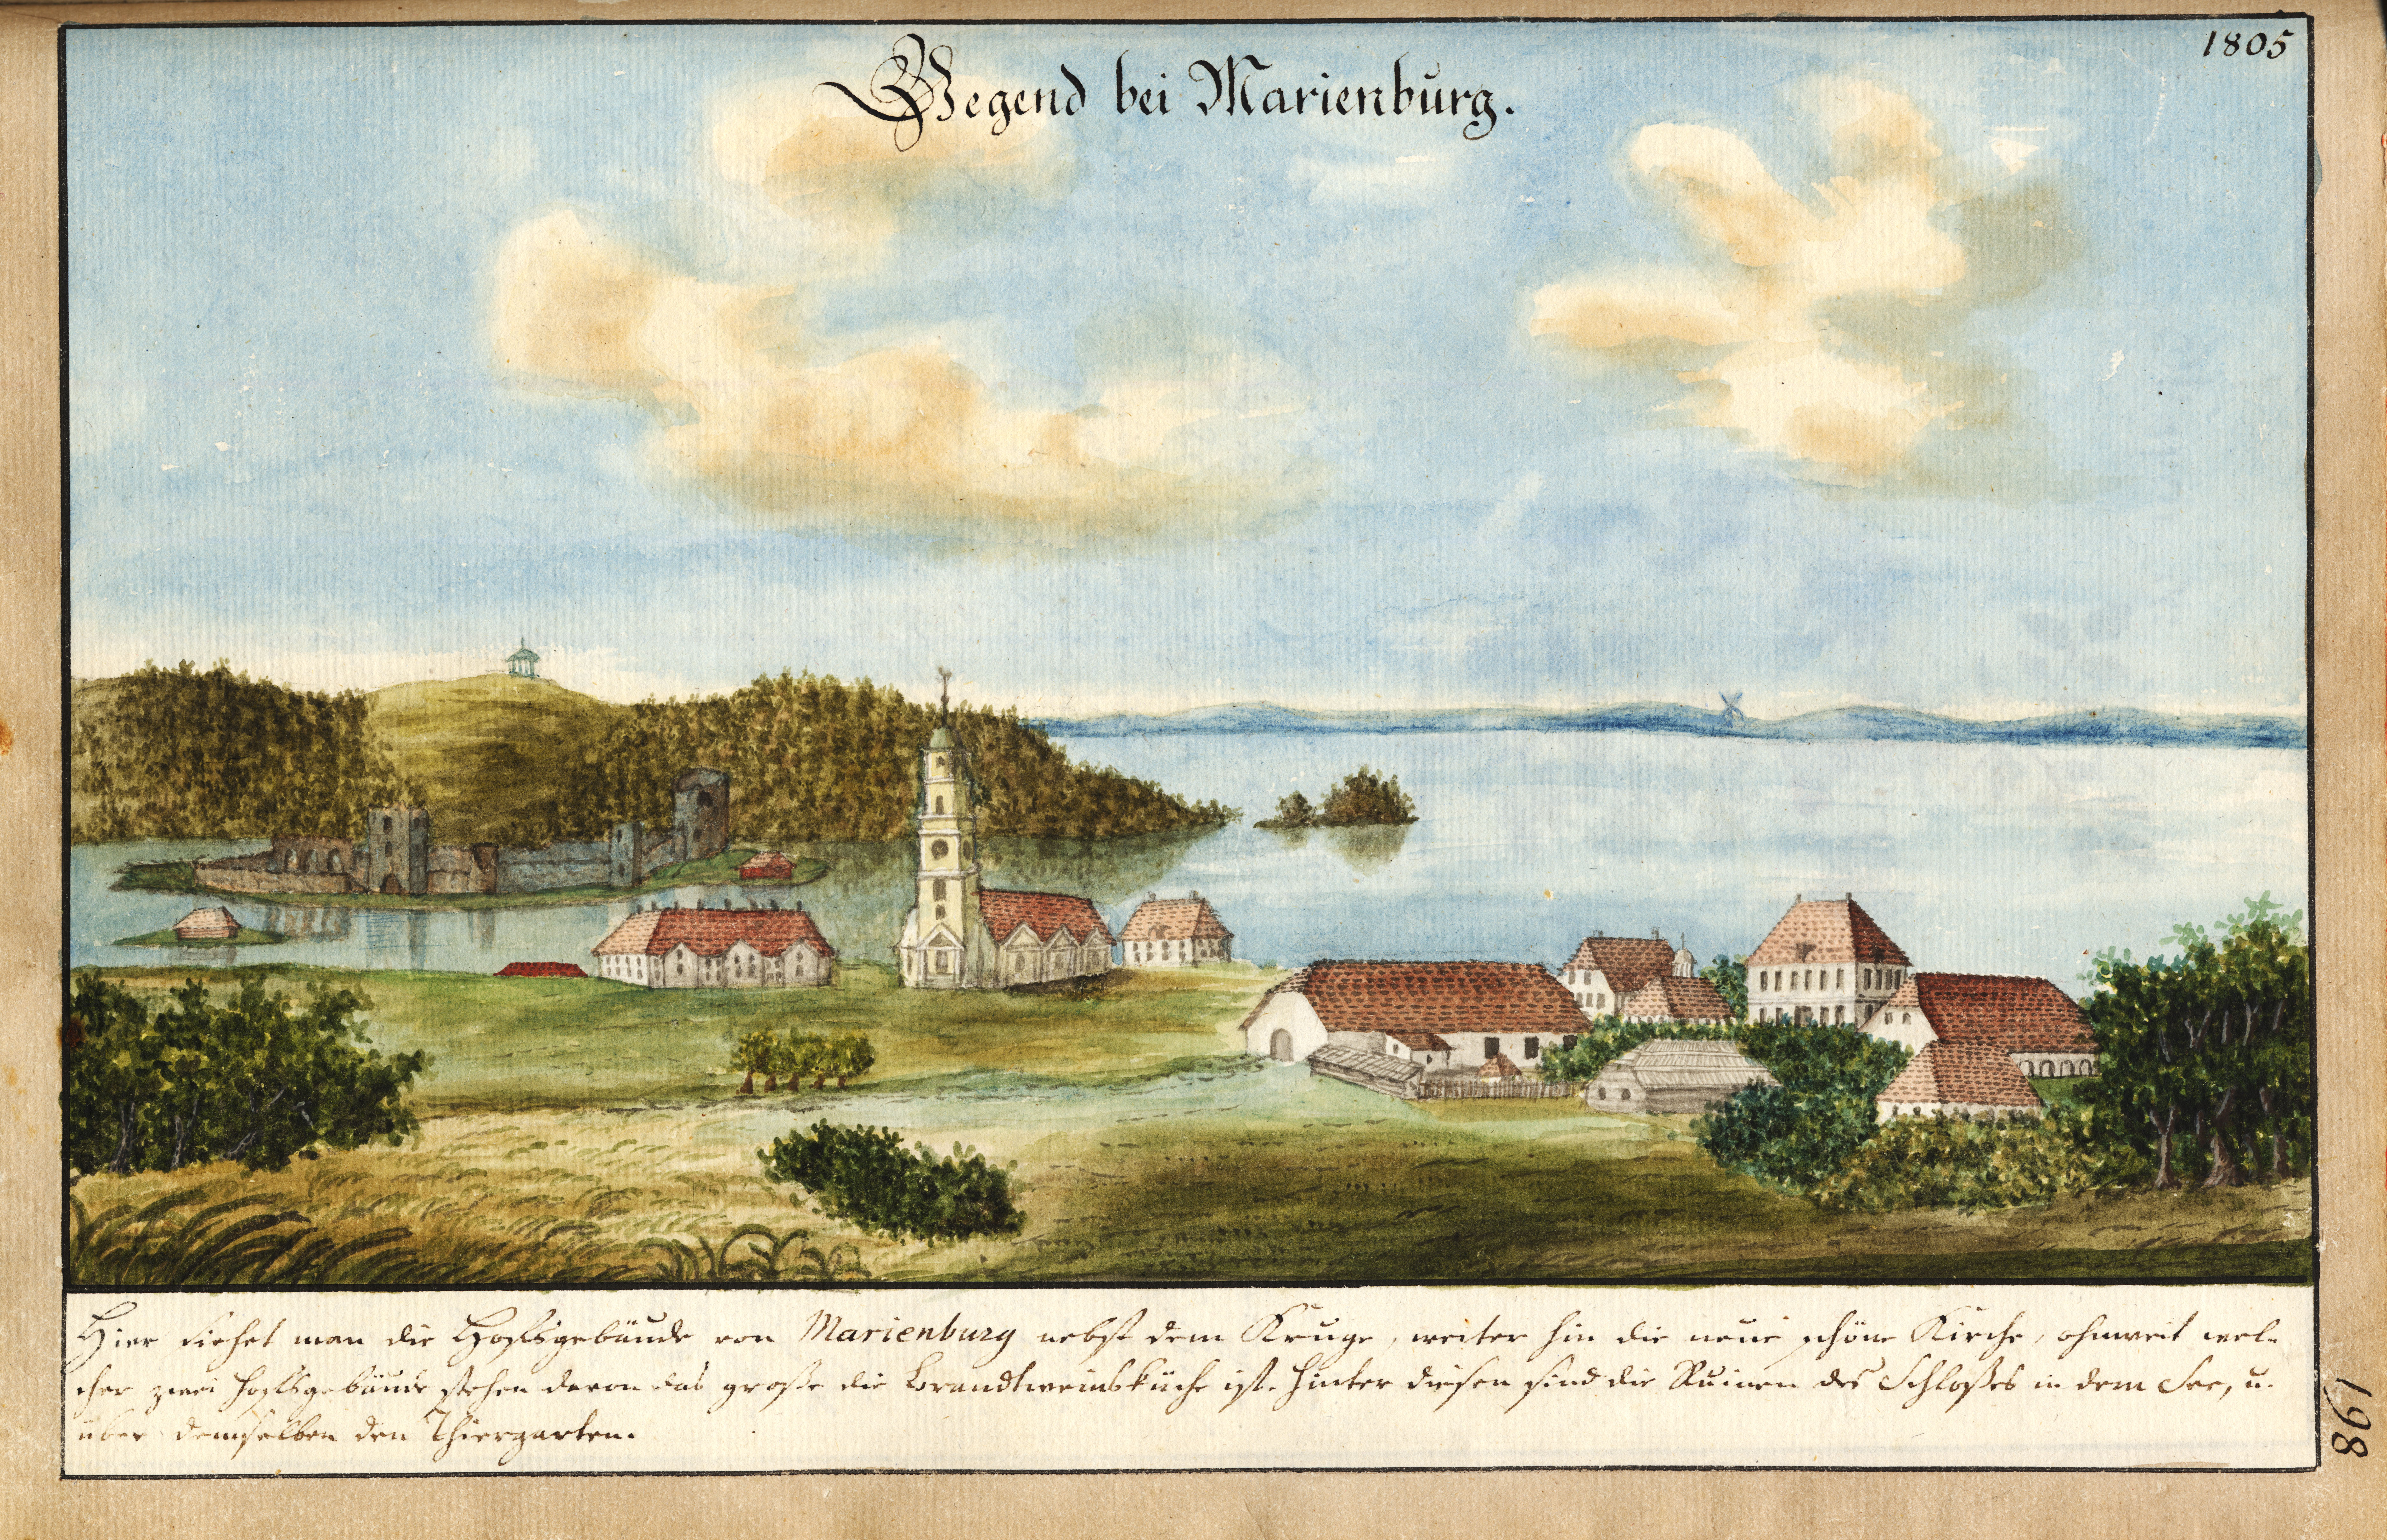 1805
Gegend bei Marienburg.
Hier siehet man die Hofsgebäude von Marienburg nebst dem Kruge, weiter hin die neue schöne Kirche, ohnweit wel-
cher zwei Hofsgebäude stehen davon das große die Brandtweinsküche ist. Hinter diesen sind die Ruinen des Schloßes in dem See, u.
über demselben den Thiergarten.
198